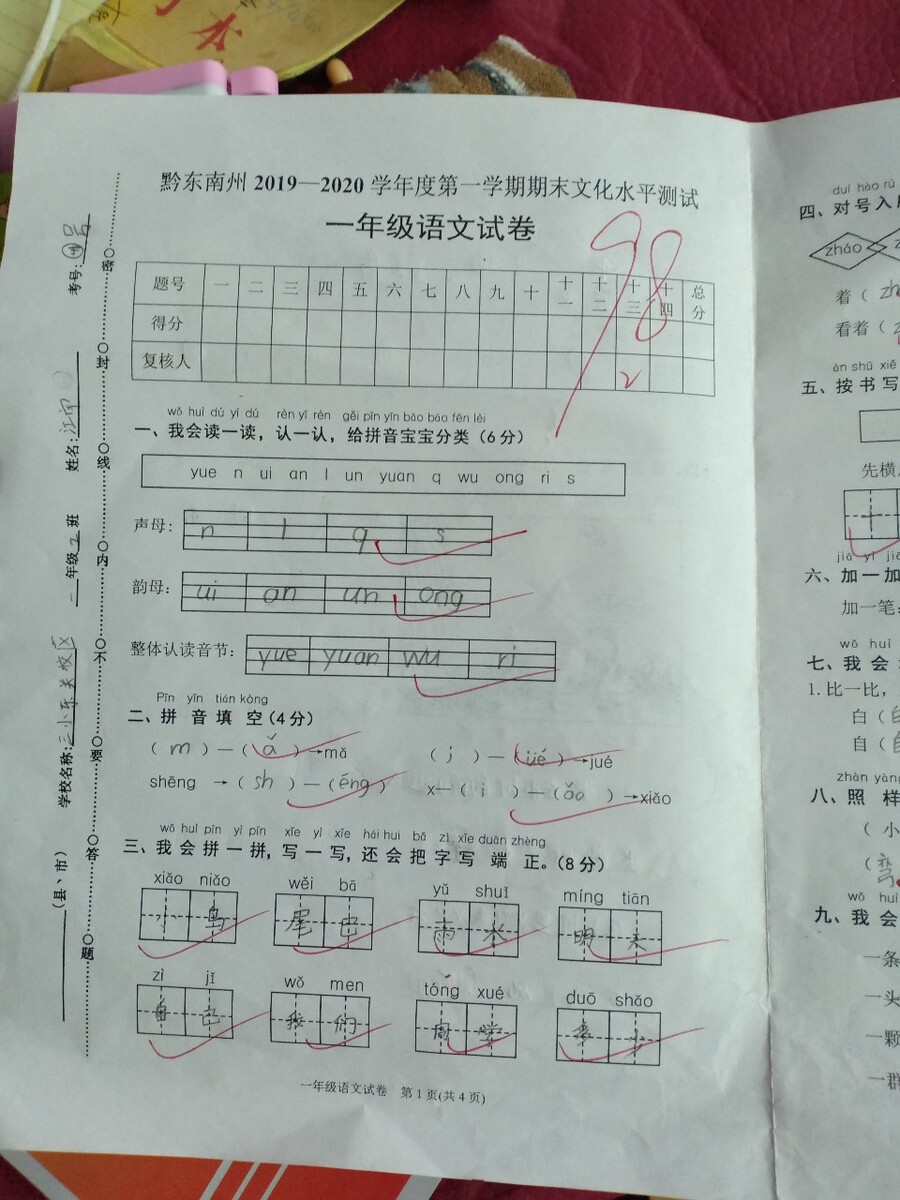 黔东南州2019—2020学年度第一学期期末文化水平测试
一年级语文试卷
98
题号 一 二 三 四 五 六 七 八 九 十 十一 十二 十三 十四 总分
得分
复核人 2
wǒ huì dú yì dú rèn yí rèn gěi pīn yīn bǎo bao fēn lèi
一、我会读一读，认一认，给拼音宝宝分类（6分）
yue n ui an l un yuan q wu ong ri s
声母： n l q s
韵母： ui an un ong
整体认读音节： yue yuan wu ri
Pīn yīn tián kòng
二、拼音填空（4分）
（ m ）—（ ǎ ）→mǎ （ j ）—（ üé ）→jué
shēng →（ sh ）—（ ēng ） x—（ i ）—（ ǎo ）→xiǎo
wǒ huì pīn yì pīn xiě yì xiě hái huì bǎ zì xiě duān zhèng
三、我会拼一拼，写一写，还会把字写端正。（8分）
xiǎo niǎo wěi bā yǔ shuǐ míng tiān
小鸟 尾巴 雨水 明天
zì jǐ wǒ men tóng xué duō shǎo
自己 我们 同学 多少
一年级语文试卷 第1页(共4页)
考号：
姓名：
一年级2班
学校名称：三小东关校区
（县、市）
密 封 线 内 不 要 答 题
duì hào rù
四、对号入
zháo
着（
看着（
àn shū xiě
五、按书写
先横
十
jiā yì jiā
六、加一加
加一笔：
wǒ huì
七、我会
1.比一比，
白（
自（
zhào yàng
八、照样
（小
（弯
wǒ huì
九、我会
一条
一头
一颗
一群